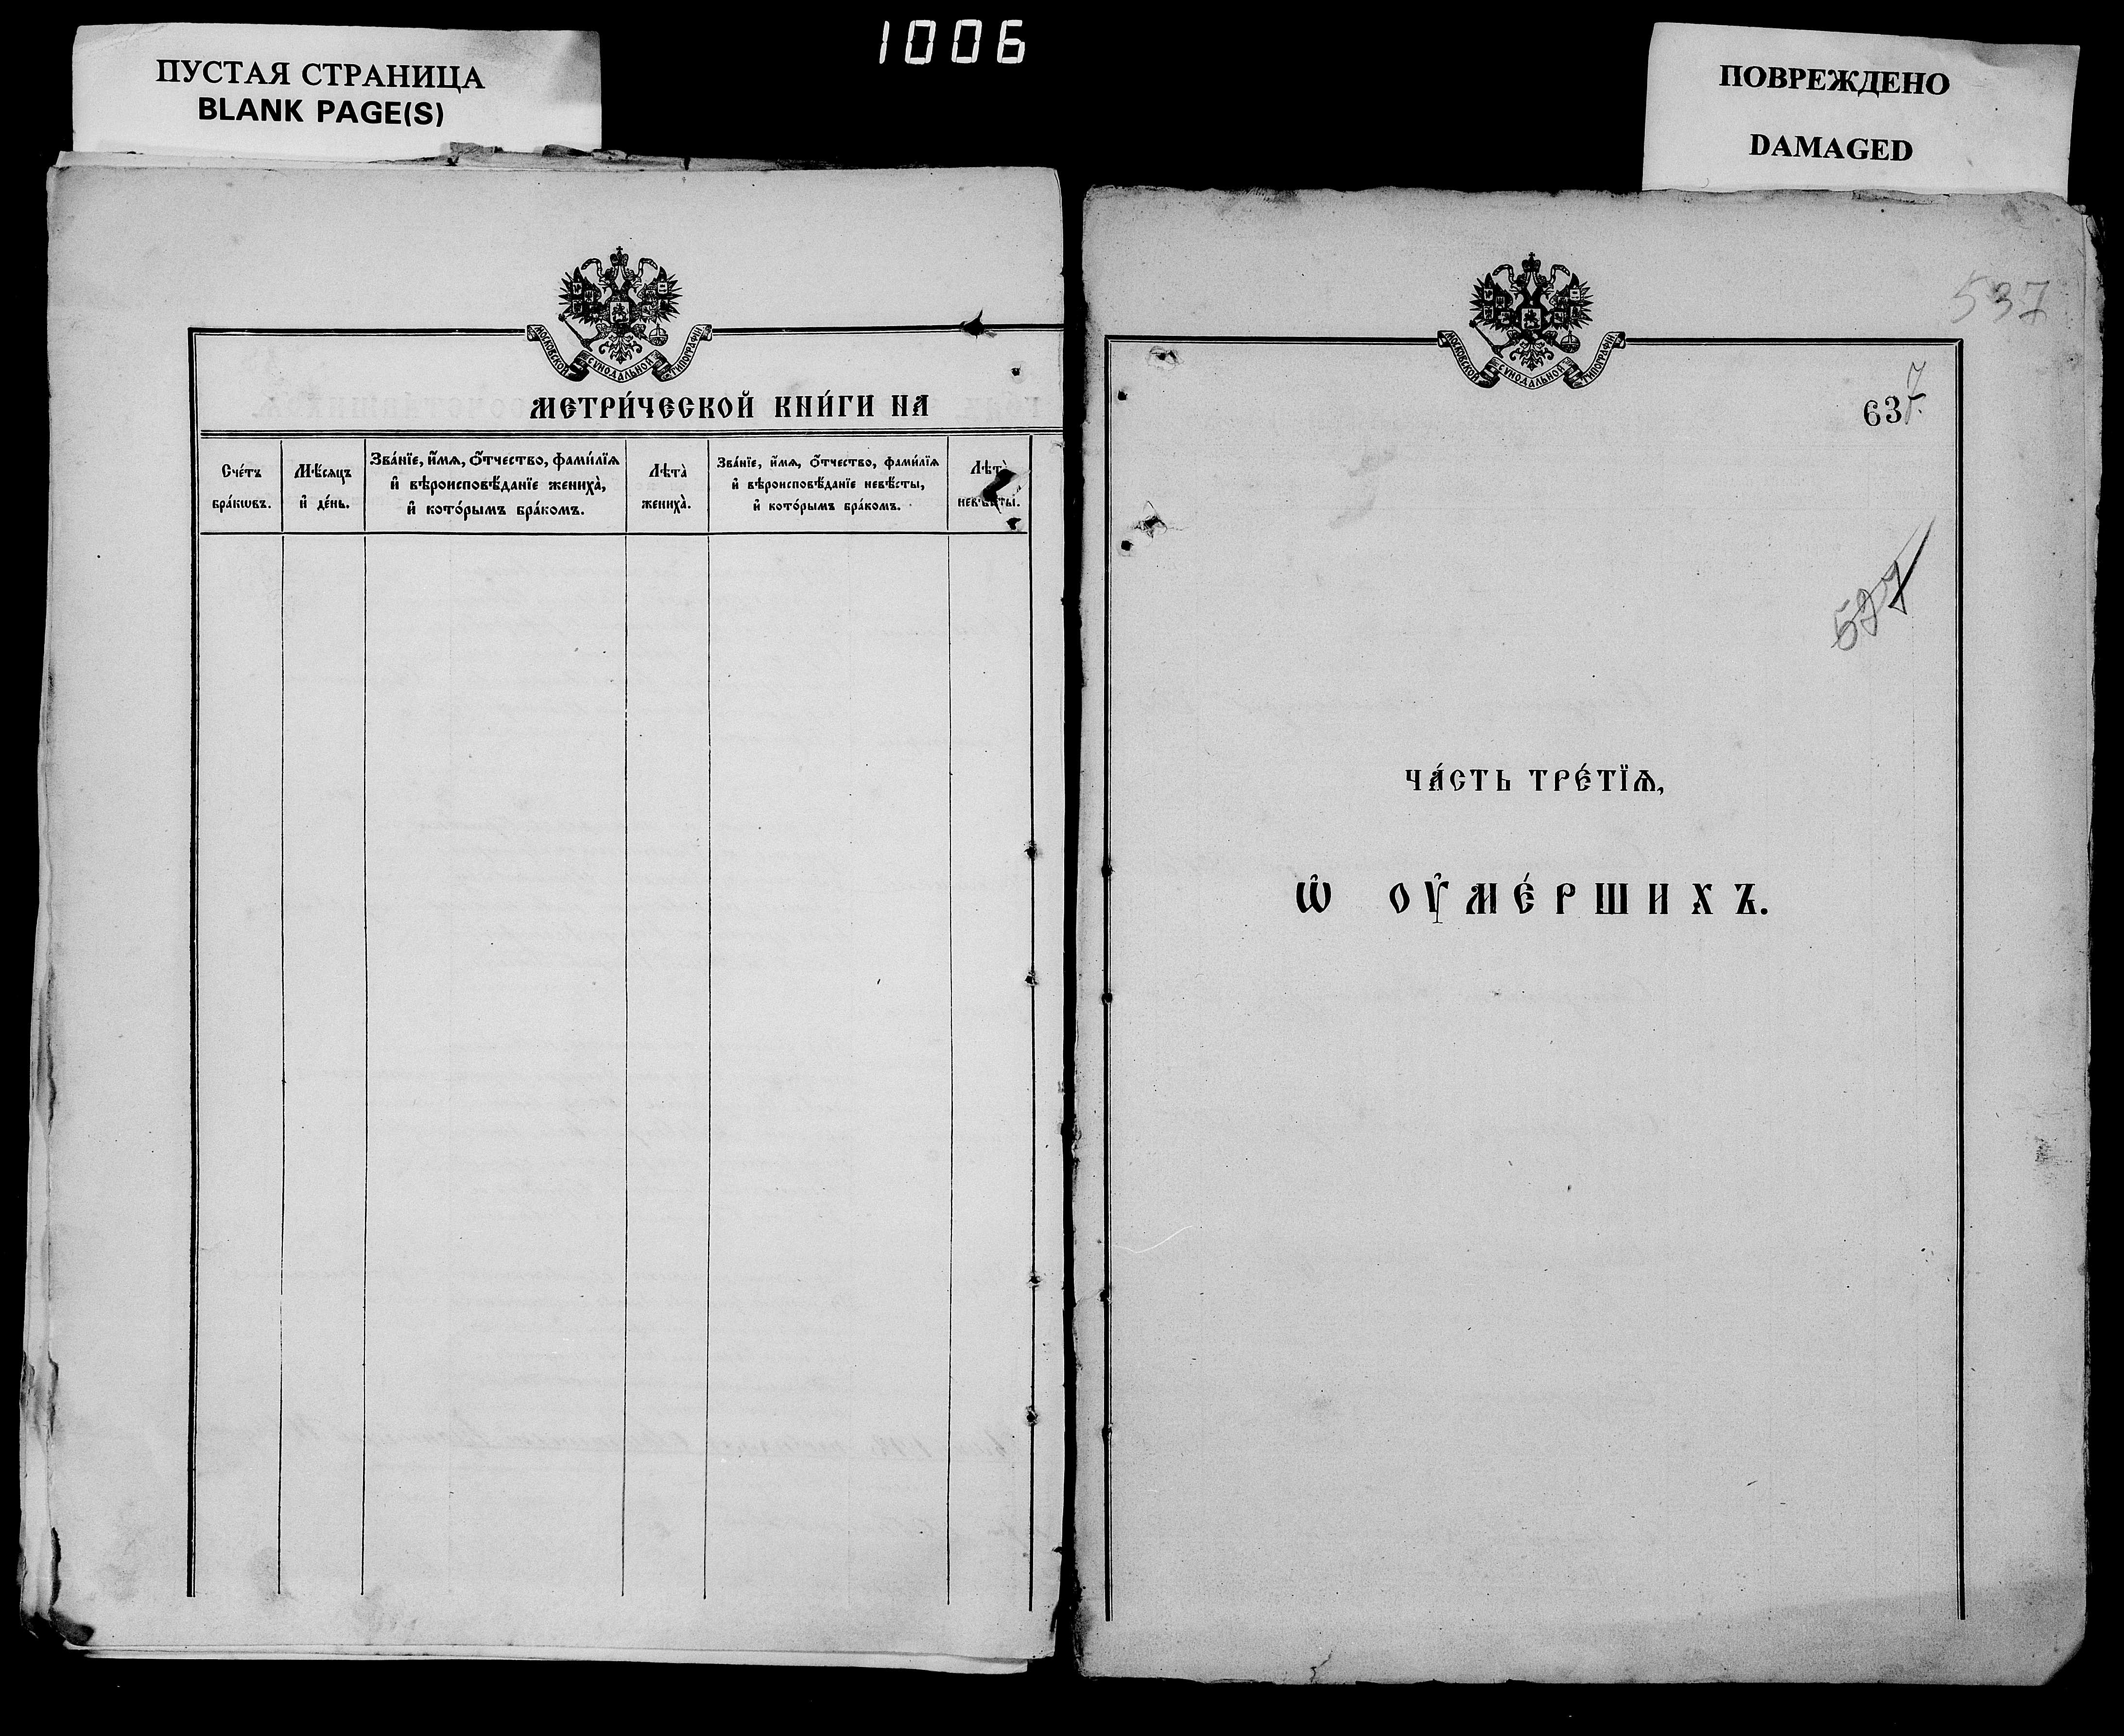 1006
ПУСТАЯ СТРАНИЦА
BLANK PAGE(S)
МОСКОВСКОЙ СѴНОДАЛЬНОЙ ТИПОГРАФІИ
МЕТРИ́ЧЕСКОЙ КНИ́ГИ НА
Сче́тъ
бра́кѡвъ.
Мѣ́сѧцъ
и҆ де́нь.
Зва́нїе, и҆́мѧ, ѻ҆́тчество, фами́лїѧ
и҆ вѣроисповѣ́данїе жениха̀,
и҆ кото́рымъ бра́комъ.
Лѣта̀
жениха̀.
Зва́нїе, и҆́мѧ, ѻ҆́тчество, фами́лїѧ
и҆ вѣроисповѣ́данїе невѣ́сты,
и҆ кото́рымъ бра́комъ.
Лѣта̀
невѣ́сты.
ПОВРЕЖДЕНО
DAMAGED
537
МОСКОВСКОЙ СѴНОДАЛЬНОЙ ТИПОГРАФІИ
637
ЧА́СТЬ ТРЕ́ТЇѦ,
Ѡ҆ ОУ҆МЕ́РШИХЪ.